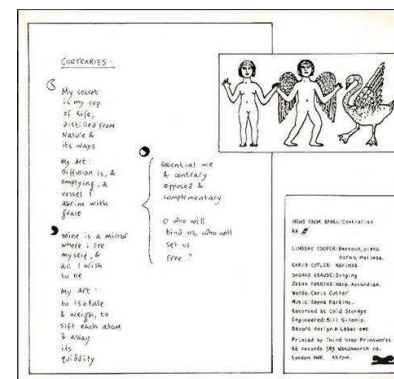 CONTRARIES:
My secret
is my cup
of life,
distilled from
Nature &
its ways
My Art:
Diffusion is, &
emptying, a
vessel I
abrim with
grace
Mine is a mirror
where i see
myself, &
all I wish
to be
My Art:
to isolate
& weigh, to
sift each atom
& assay
its
quiddity
essential we
& contrary
opposed &
complementary
O who will
bind us, who will
set us
free ?
NEWS FROM BABEL: Contraries
Re
LINDSAY COOPER: Bassoon, piano
CHRIS CUTLER: Marimba
DAGMAR KRAUSE: Singing
ZEENA PARKINS: Harp, Accordian.
Words: Chris Cutler
Music: Zeena Parkins.
Recorded at Cold Storage
Engineered: Bill Gilonis.
Record design & Label: EMT
Printed by Third Step Printworks.
Re records 583 Wandsworth rd.
London SW8. 45 rpm.